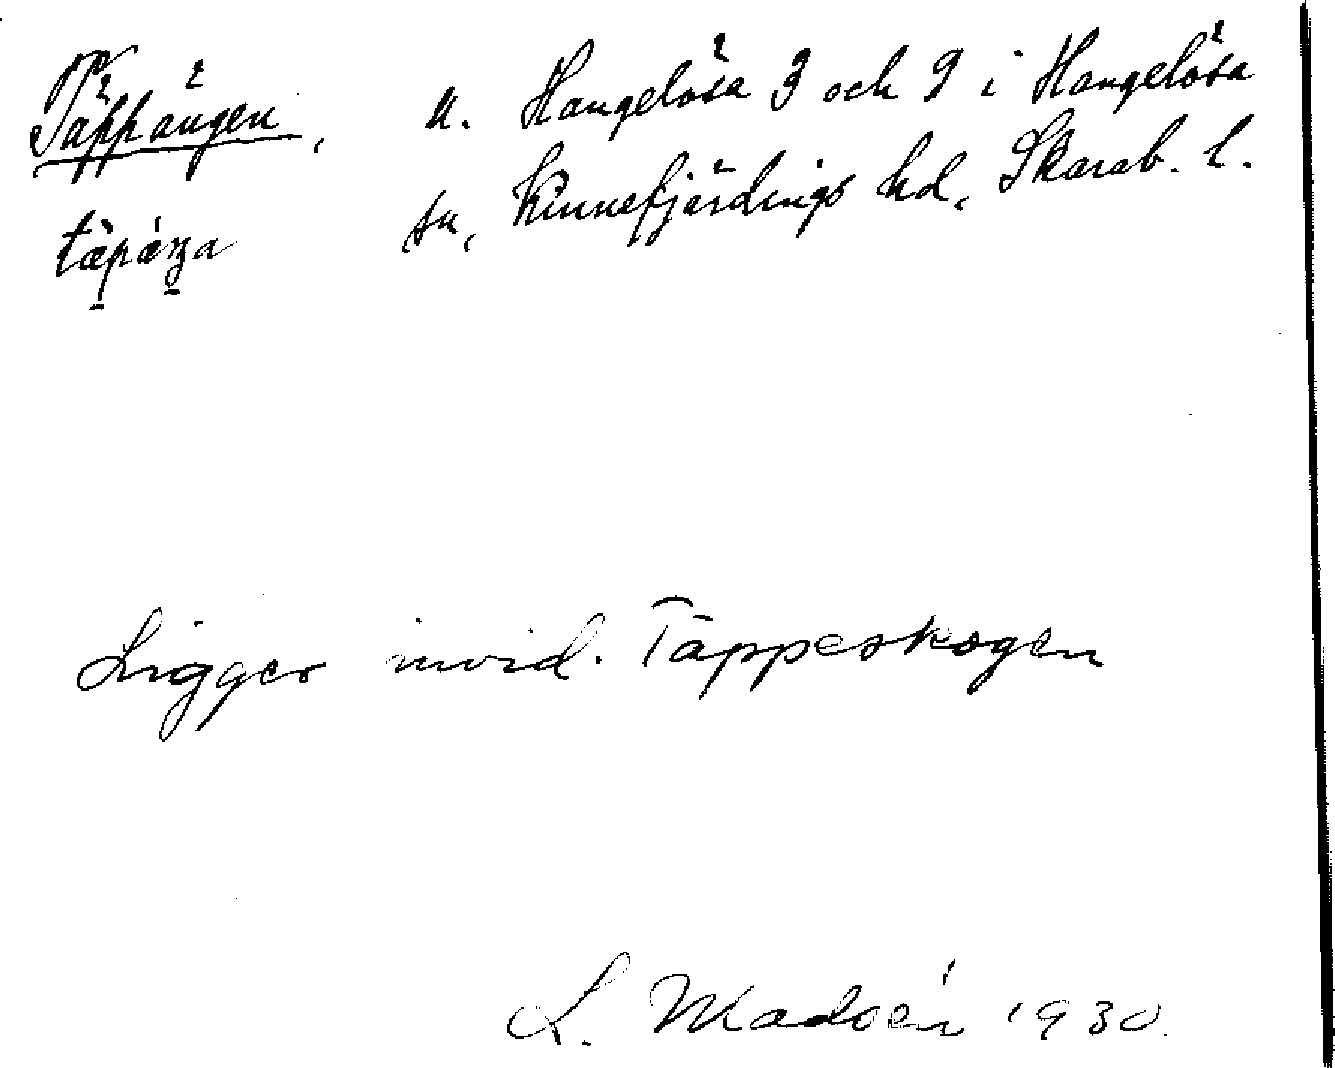 Täppängen, u. Hangelösa 3 och 9 i Hangelösa
sn, Kinnefjärdings hd, Skarab. l.
täpäŋa
Ligger invid. Täppeskogen
L. Madsén 1930.